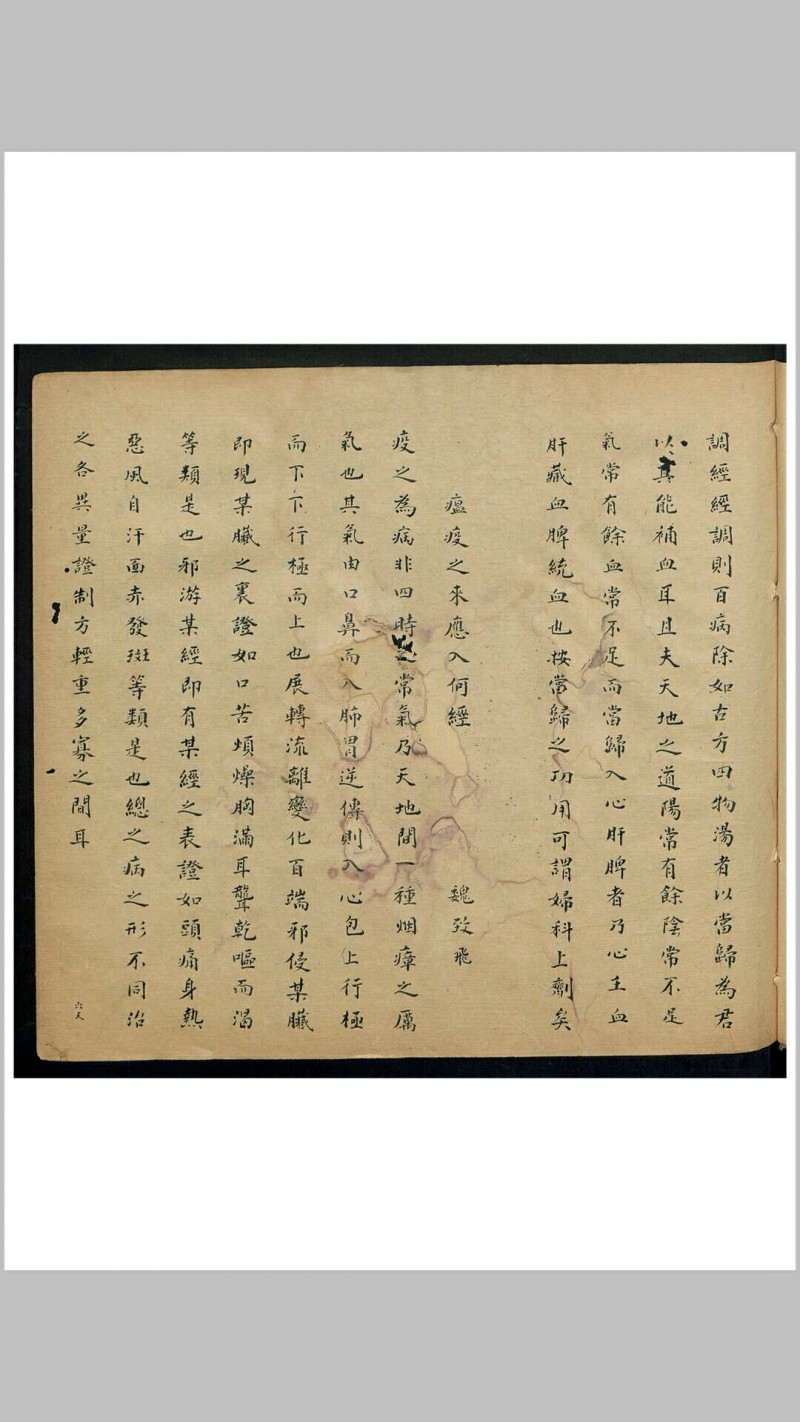 調經經調則百病除如古方四物湯者以當歸為君
以其能補血耳且夫天地之道陽常有餘陰常不足
氣常有餘血常不足而當歸入心肝脾者乃心主血
肝藏血脾統血也按當歸之功用可謂婦科上劑矣
瘟疫之來應入何經　魏致飛
疫之為病非四時之常氣乃天地間一種烟瘴之厲
氣也其氣由口鼻而入肺胃逆傳則入心包上行極
而下下行極而上也展轉流離變化百端邪侵某臟
即現某臟之裏證如口苦煩燥胸滿耳聾乾嘔而渴
等類是也邪游某經即有某經之表證如頭痛身熱
惡風自汗面赤發斑等類是也總之病之形不同治
之各異量證制方輕重多寡之間耳
六